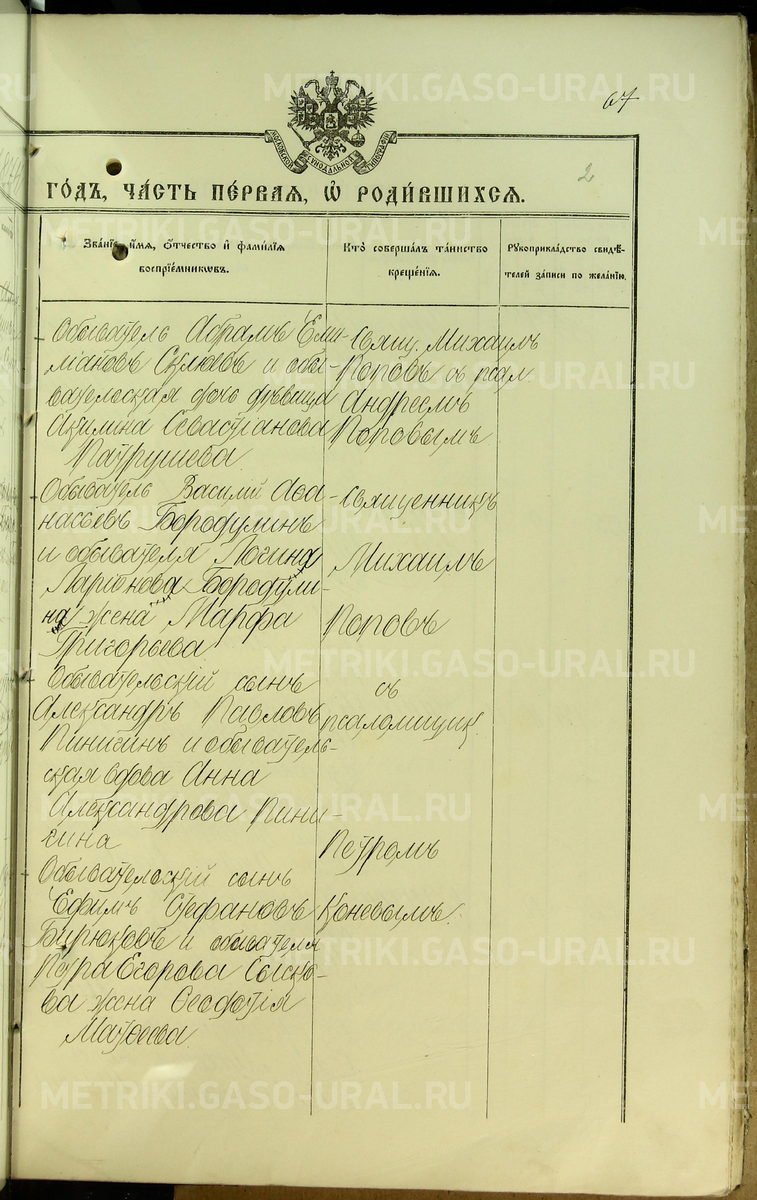 67
МОСКОВСКОЙ СѴНОДАЛЬНОЙ ТИПОГРАФІИ
2
ГО́ДЪ, ЧА́СТЬ ПЕ́РВАЯ, Ѽ РОДИ́ВШИХСЯ.
Зва́нїе, и́мя, о́тчество и҆ фами́лїя
воспрїе́мниковъ.
Кто̀ соверша́лъ та́инство
креще́нїя.
Рꙋкоприкла́дство свидѣ́-
телей за́писи по жела́нїю.
Обыватель Абрамъ Ели-
мановъ и обы-
вательская дочь дѣвица
Акилина Севастіанова
Патрушева
Свящ. Михаилъ
Поповъ съ псал.
Андреемъ
Поповымъ
Обыватель Василій Аѳа-
насьевъ Бородулинъ
и обывателя Логина
Ларіонова Бородули-
на жена Марфа
Григорьева
Священникъ
Михаилъ
Поповъ
Обывательскій сынъ
Александръ Павловъ
Пинигинъ и обыватель-
ская вдова Анна
Александрова Пини-
гина
съ
псаломщик.
Петромъ
Обывательскій сынъ
Ефимъ Стефановъ
Бирюковъ и обывателя
Петра Егорова Сыско-
ва жена Ѳеодотія
Матѳеева
Коневымъ.
METRIKI.GASO-URAL.RU